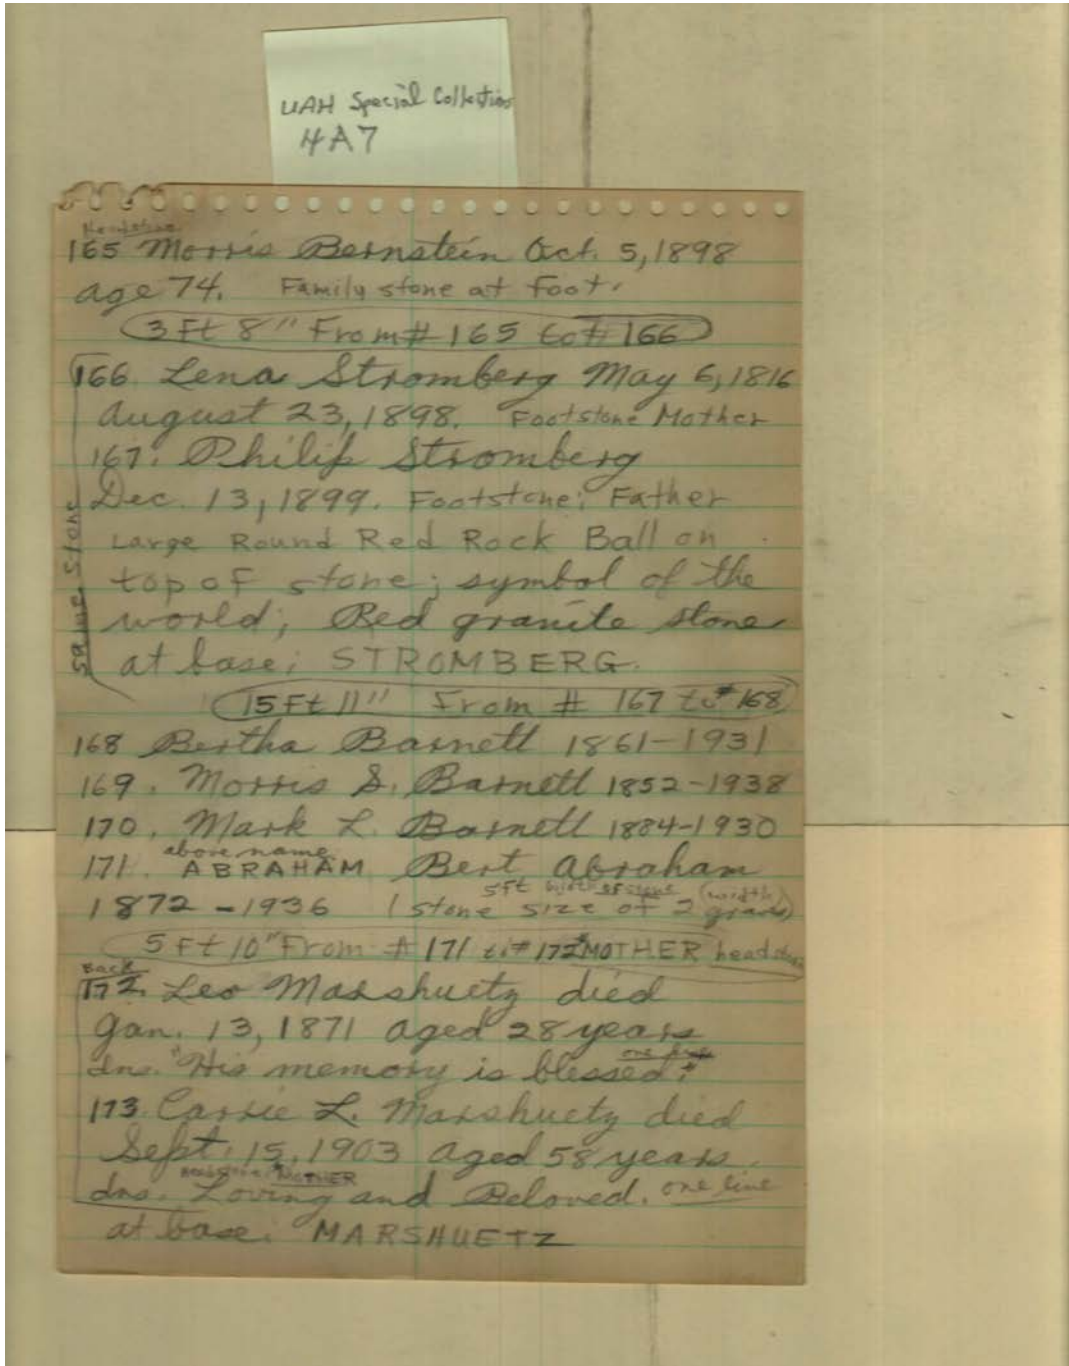 UAH Special Collection
4A7
Headstone
165 Morris Bernstein Oct. 5, 1898
age 74. Family stone at foot.
3 Ft 8" From # 165 to # 166
166. Lena Stromberg May 6, 1816
August 23, 1898. Footstone Mother
167. Philip Stromberg
Dec. 13, 1899. Footstone; Father
Large Round Red Rock Ball on
top of stone; symbol of the
world; Red granite stone
at base; STROMBERG.
same stone
15 Ft 11" From # 167 to # 168
168 Bertha Barnett 1861-1931
169. Morris S. Barnett 1852-1938
170. Mark L. Barnett 1884-1930
above name
171. ABRAHAM Bert Abraham
5ft width of stone (width
1872-1936 1 stone size of 2 graves)
5 Ft 10" From # 171 to # 172 MOTHER headstone
Back
172. Leo Marshuetz died
Jan. 13, 1871 aged 28 years
one line
Ins. "His memory is blessed."
173 Carrie L. Marshuetz died
Sept. 15, 1903 aged 58 years.
headstone: MOTHER
Ins. Loving and Beloved. one line
at base: MARSHUETZ